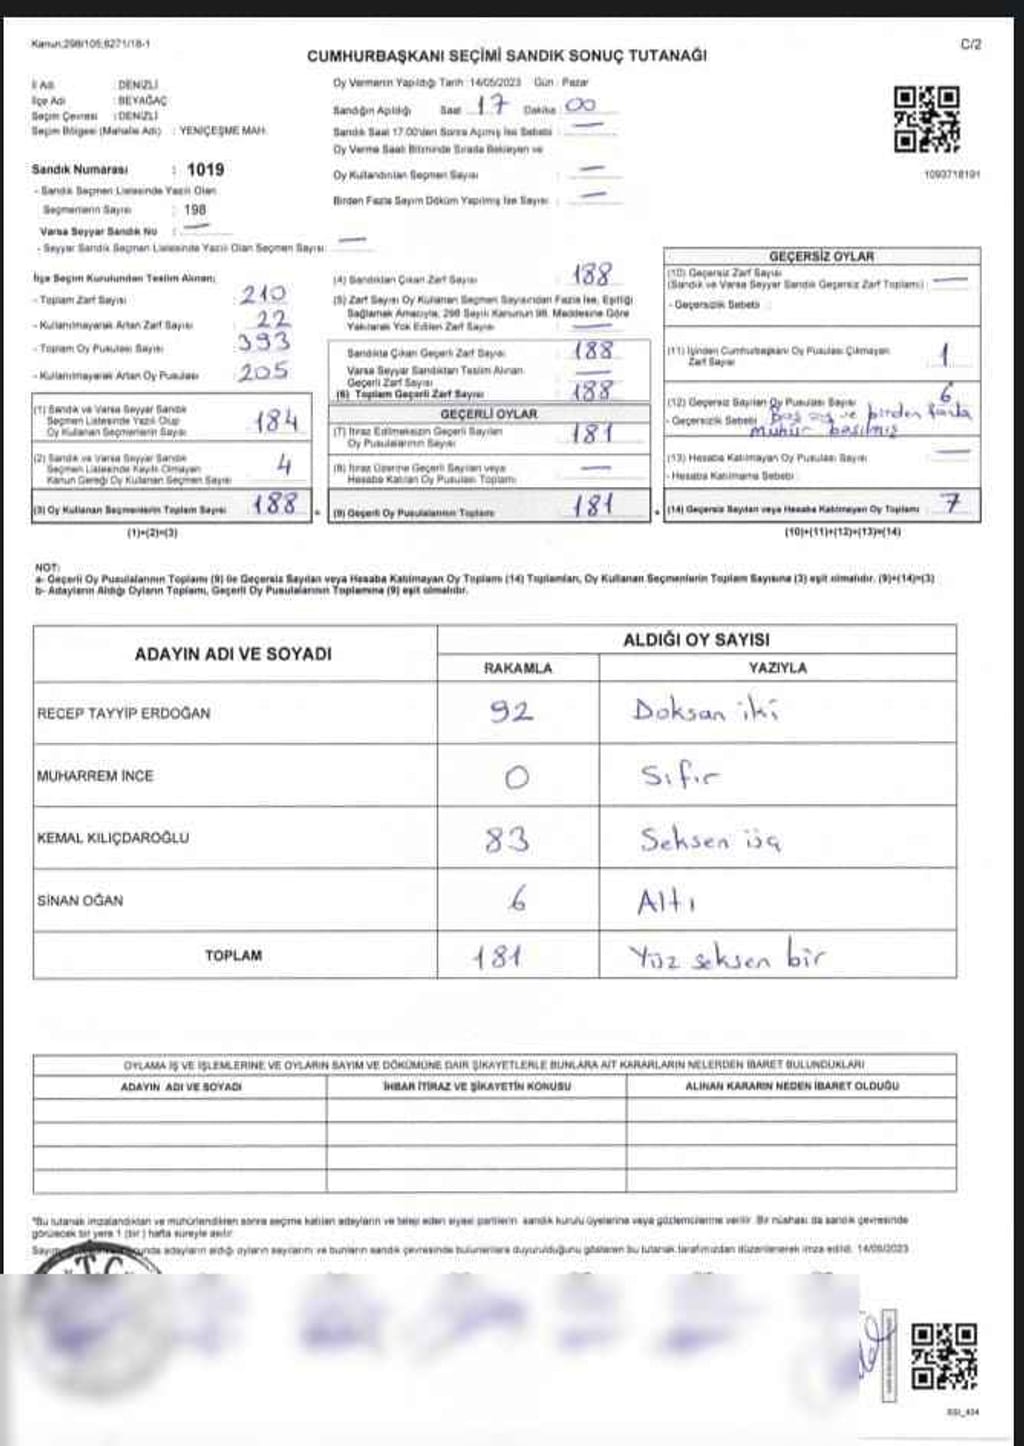 Kanun:298/105;6271/18-1
C/2
CUMHURBAŞKANI SEÇİMİ SANDIK SONUÇ TUTANAĞI
İl Adı : DENİZLİ
İlçe Adı : BEYAĞAÇ
Seçim Çevresi : DENİZLİ
Seçim Bölgesi (Mahalle Adı) : YENİÇEŞME MAH.
Sandık Numarası : 1019
- Sandık Seçmen Listesinde Yazılı Olan
Seçmenlerin Sayısı : 198
Varsa Seyyar Sandık No : —
- Seyyar Sandık Seçmen Listesinde Yazılı Olan Seçmen Sayısı: —
Oy Vermenin Yapıldığı Tarih :14/05/2023 Gün : Pazar
Sandığın Açıldığı Saat : 17 Dakika : 00
Sandık Saat 17.00'den Sonra Açılmış İse Sebebi : —
Oy Verme Saati Bitiminde Sırada Bekleyen ve
Oy Kullandırılan Seçmen Sayısı : —
Birden Fazla Sayım Döküm Yapılmış İse Sayısı : —
1093718191
İlçe Seçim Kurulundan Teslim Alınan;
- Toplam Zarf Sayısı : 210
- Kullanılmayarak Artan Zarf Sayısı : 22
- Toplam Oy Pusulası Sayısı : 393
- Kullanılmayarak Artan Oy Pusulası : 205
(1) Sandık ve Varsa Seyyar Sandık
Seçmen Listesinde Yazılı Olup
Oy Kullanan Seçmenlerin Sayısı : 184
(2) Sandık ve Varsa Seyyar Sandık
Seçmen Listesinde Kayıtlı Olmayan
Kanun Gereği Oy Kullanan Seçmen Sayısı : 4
(3) Oy Kullanan Seçmenlerin Toplam Sayısı : 188
(1)+(2)=(3)
(4) Sandıktan Çıkan Zarf Sayısı : 188
(5) Zarf Sayısı Oy Kullanan Seçmen Sayısından Fazla İse, Eşitliği
Sağlamak Amacıyla, 298 Sayılı Kanunun 98. Maddesine Göre
Yakılarak Yok Edilen Zarf Sayısı : —
Sandıkta Çıkan Geçerli Zarf Sayısı : 188
Varsa Seyyar Sandıktan Teslim Alınan
Geçerli Zarf Sayısı : —
(6) Toplam Geçerli Zarf Sayısı : 188
GEÇERLİ OYLAR
(7) İtiraz Edilmeksizin Geçerli Sayılan
Oy Pusulalarının Sayısı : 181
(8) İtiraz Üzerine Geçerli Sayılan veya
Hesaba Katılan Oy Pusulası Toplamı : —
(9) Geçerli Oy Pusulalarının Toplamı : 181
GEÇERSİZ OYLAR
(10) Geçersiz Zarf Sayısı
(Sandık ve Varsa Seyyar Sandık Geçersiz Zarf Toplamı) : —
- Geçersizlik Sebebi :
(11) İçinden Cumhurbaşkanı Oy Pusulası Çıkmayan
Zarf Sayısı : 1
(12) Geçersiz Sayılan Oy Pusulası Sayısı : 6
- Geçersizlik Sebebi : boş oy ve birden fazla
mühür basılmış
(13) Hesaba Katılmayan Oy Pusulası Sayısı : —
- Hesaba Katılmama Sebebi :
(14) Geçersiz Sayılan veya Hesaba Katılmayan Oy Toplamı : 7
(10)+(11)+(12)+(13)=(14)
NOT:
a- Geçerli Oy Pusulalarının Toplamı (9) ile Geçersiz Sayılan veya Hesaba Katılmayan Oy Toplamı (14) Toplamları, Oy Kullanan Seçmenlerin Toplam Sayısına (3) eşit olmalıdır. (9)+(14)=(3)
b- Adayların Aldığı Oyların Toplamı, Geçerli Oy Pusulalarının Toplamına (9) eşit olmalıdır.
ADAYIN ADI VE SOYADI
ALDIĞI OY SAYISI
RAKAMLA YAZIYLA
RECEP TAYYİP ERDOĞAN 92 Doksan iki
MUHARREM İNCE 0 Sıfır
KEMAL KILIÇDAROĞLU 83 Seksen üç
SİNAN OĞAN 6 Altı
TOPLAM 181 Yüz seksen bir
OYLAMA İŞ VE İŞLEMLERİNE VE OYLARIN SAYIM VE DÖKÜMÜNE DAİR ŞİKAYETLERLE BUNLARA AİT KARARLARIN NELERDEN İBARET BULUNDUKLARI
ADAYIN ADI VE SOYADI İHBAR İTİRAZ VE ŞİKAYETİN KONUSU ALINAN KARARIN NEDEN İBARET OLDUĞU
*Bu tutanak imzalandıktan ve mühürlendikten sonra seçime katılan adayların ve talep eden siyasi partilerin sandık kurulu üyelerine veya gözlemcilerine verilir. Bir nüshası da sandık çevresinde
görülecek bir yere 1 (bir) hafta süreyle asılır.
adayların aldığı oyların sayılarını ve bunların sandık çevresinde bulunanlara duyurulduğunu gösteren bu tutanak tarafımızdan düzenlenerek imza edildi. 14/05/2023
T.C.